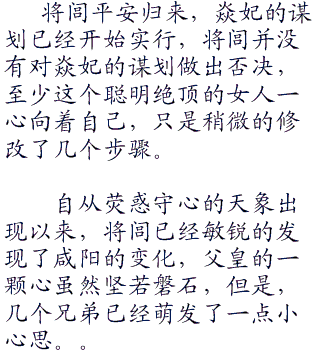 将闾平安归来，焱妃的谋
划已经开始实行，将闾并没
有对焱妃的谋划做出否决，
至少这个聪明绝顶的女人一
心向着自己，只是稍微的修
改了几个步骤。
自从荧惑守心的天象出
现以来，将闾已经敏锐的发
现了咸阳的变化，父皇的一
颗心虽然坚若磐石，但是，
几个兄弟已经萌发了一点小
心思。。